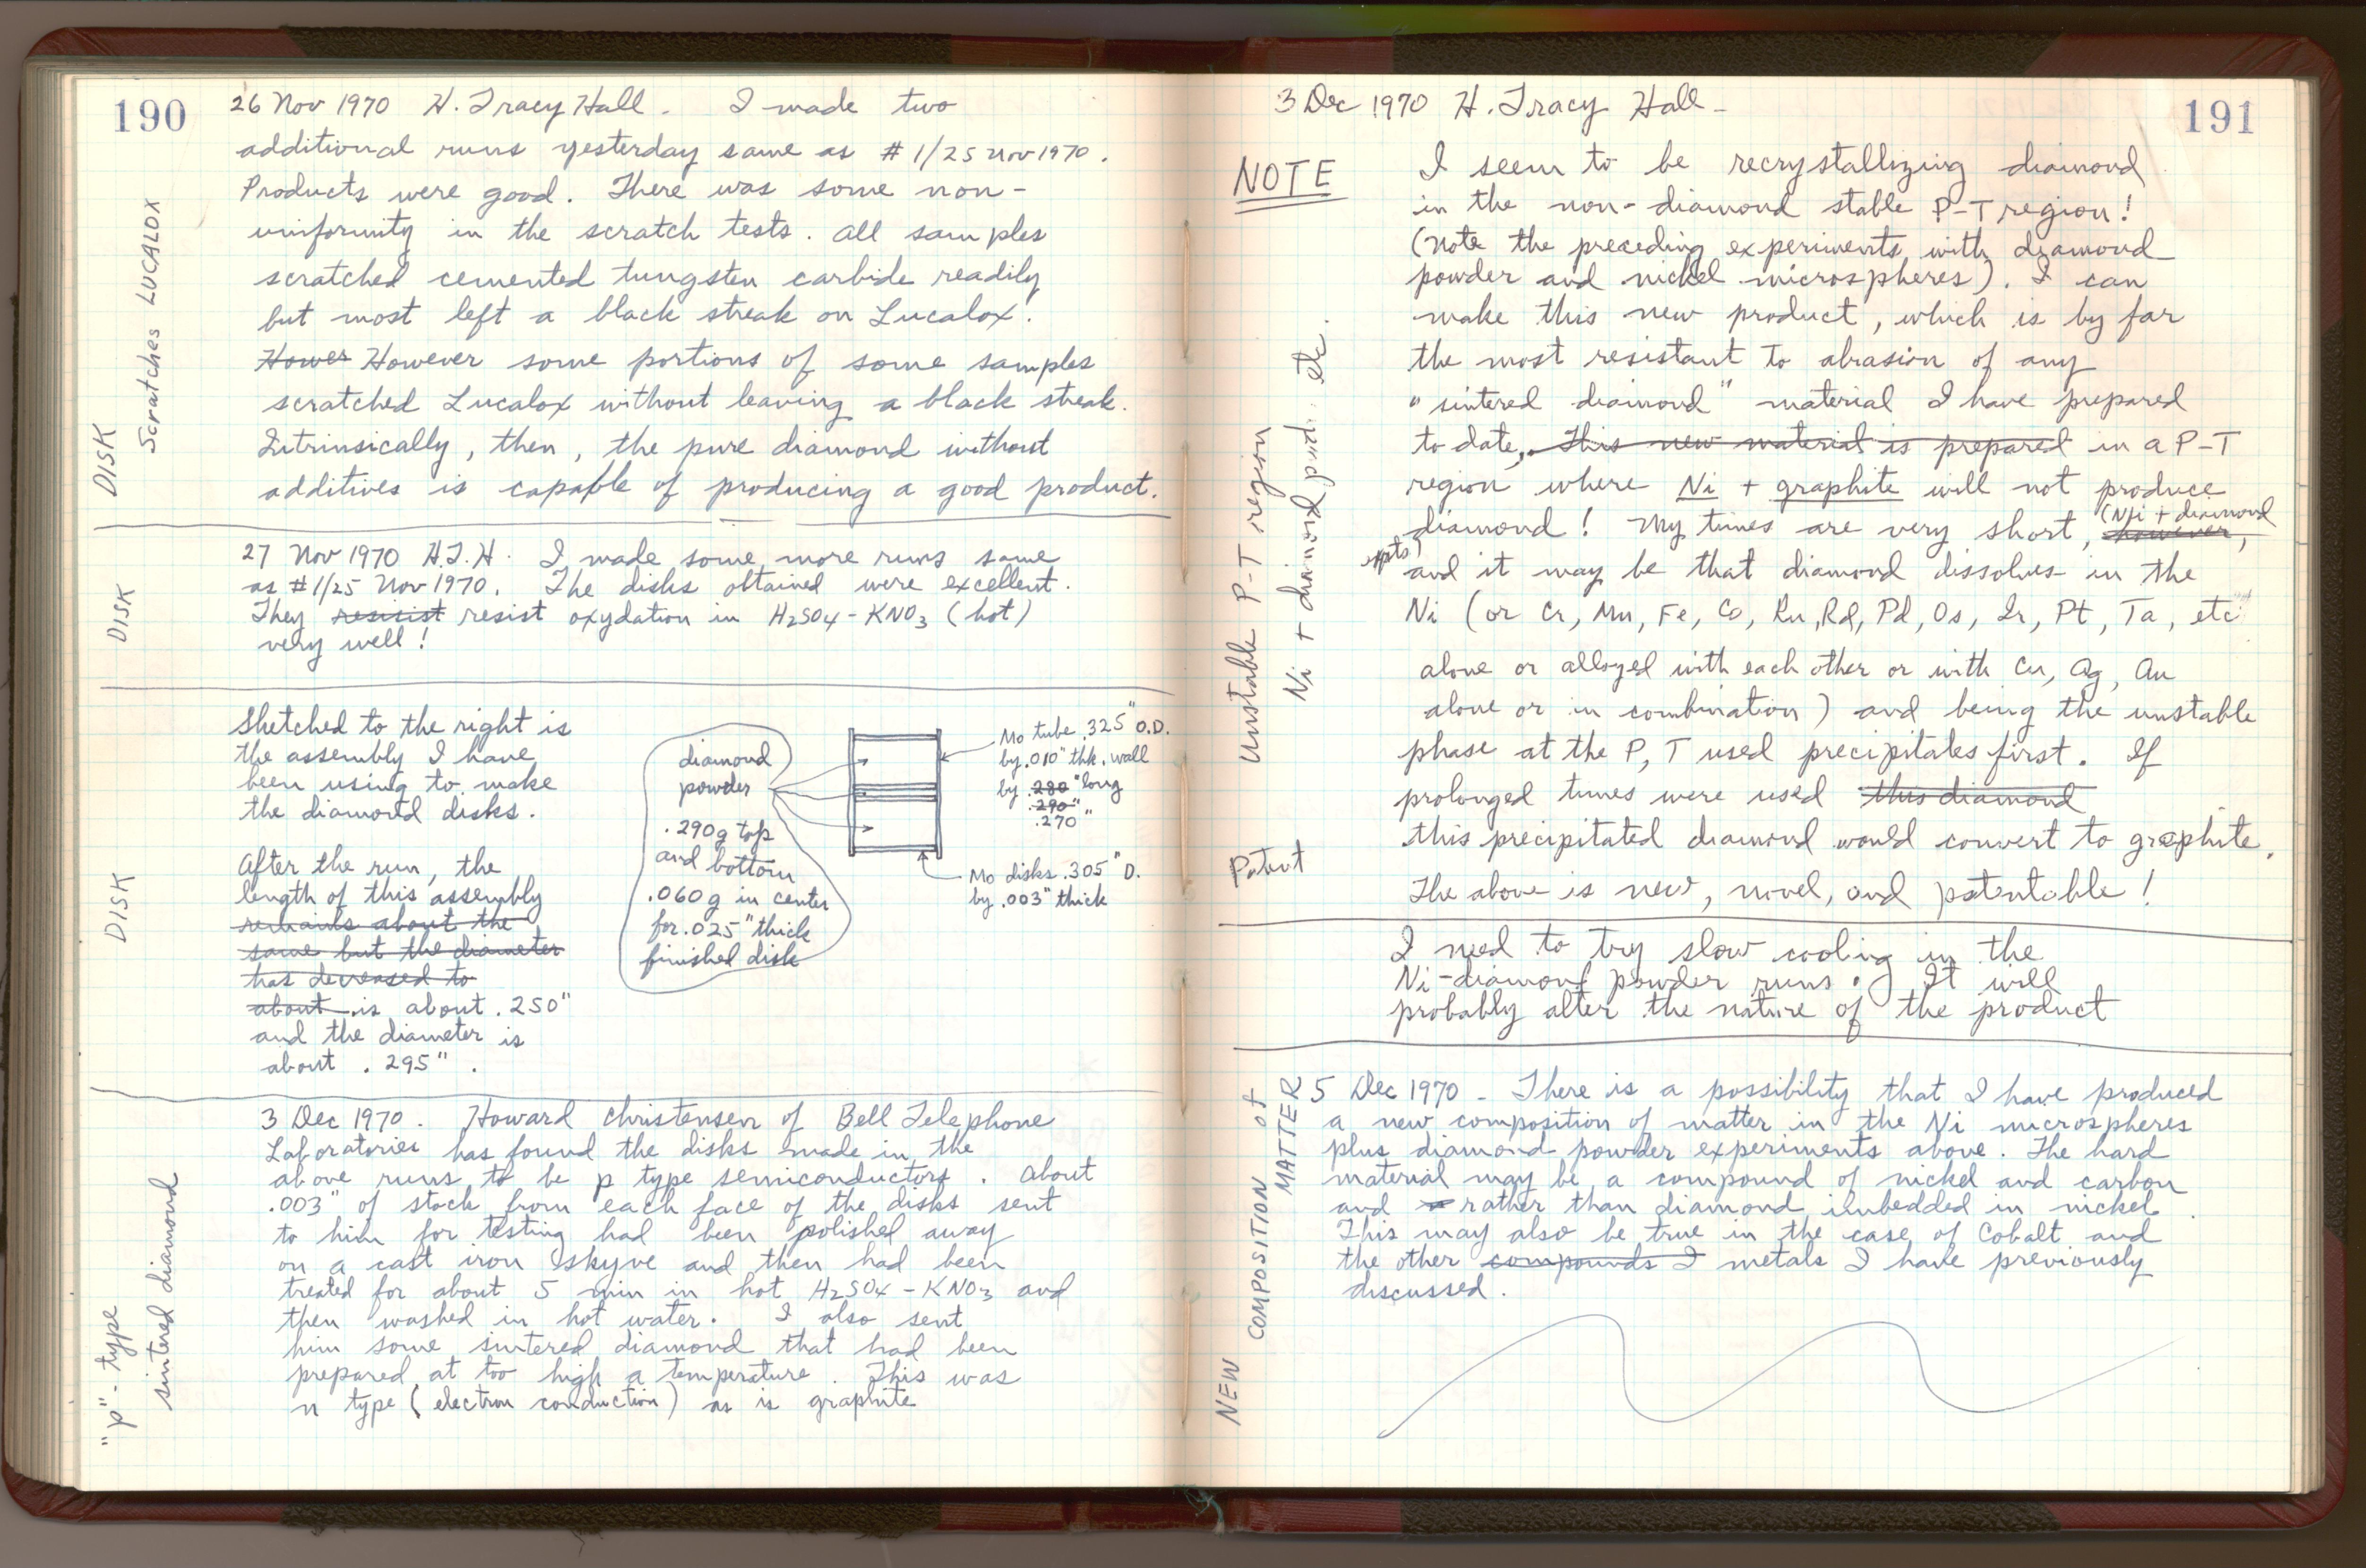 190
26 Nov 1970 H. Tracy Hall. I made two
additional runs yesterday same as # 1/25 Nov 1970.
Products were good. There was some non-
uniformity in the scratch tests. All samples
scratched cemented tungsten carbide readily
but most left a black streak on Lucalox.
Hower However some portions of some samples
scratched Lucalox without leaving a black streak.
Intrinsically, then, the pure diamond without
additives is capable of producing a good product.
DISK
Scratches LUCALOX
27 Nov 1970 H.T.H. I made some more runs same
as #1/25 Nov 1970. The disks obtained were excellent.
They resisist resist oxydation in H2SO4-KNO3 (hot)
very well!
DISK
Sketched to the right is
the assembly I have
been using to make
the diamond disks.
After the run, the
length of this assembly
remains about the
same but the diameter
has decreased to
about is about .250"
and the diameter is
about .295".
DISK
diamond
powder
.290g top
and bottom
.060g in center
for .025" thick
finished disk
Mo tube .325" O.D.
by .010" thk. wall
by .280" long
.290"
.270"
Mo disks .305" D.
by .003" thick
3 Dec 1970. Howard Christensen of Bell Telephone
Laboratories has found the disks made in the
above runs to be p type semiconductors. About
.003" of stock from each face of the disks sent
to him for testing had been polished away
on a cast iron skyve and then had been
treated for about 5 min in hot H2SO4-KNO3 and
then washed in hot water. I also sent
him some sintered diamond that had been
prepared at too high a temperature. This was
n type (electron conduction) as is graphite
"p"-type
sintered diamond
191
3 Dec 1970 H. Tracy Hall-
NOTE
I seem to be recrystallizing diamond
in the non-diamond stable P-T region!
(note the preceding experiments with diamond
powder and nickel microspheres). I can
make this new product, which is by far
the most resistant to abrasion of any
"sintered diamond" material I have prepared
to date, This new material is prepared in a P-T
region where Ni + graphite will not produce
diamond! My times are very short, however, (Ni + diamond
expts) and it may be that diamond dissolves in the
Ni (or Cr, Mn, Fe, Co, Ru, Rd, Pd, Os, Ir, Pt, Ta, etc
alone or alloyed with each other or with Cu, Ag, Au
alone or in combination) and being the unstable
phase at the P, T used precipitates first. If
prolonged times were used this diamond
this precipitated diamond would convert to graphite.
The above is new, novel, and patentable!
Unstable P-T region
Ni + diamond pwd. etc.
Patent
I need to try slow cooling in the
Ni-diamond powder runs. It will
probably alter the nature of the product
5 Dec 1970 - There is a possibility that I have produced
a new composition of matter in the Ni microspheres
plus diamond powder experiments above. The hard
material may be a compound of nickel and carbon
and rather than diamond imbedded in nickel.
This may also be true in the case of Cobalt and
the other compounds I metals I have previously
discussed.
NEW COMPOSITION of
MATTER